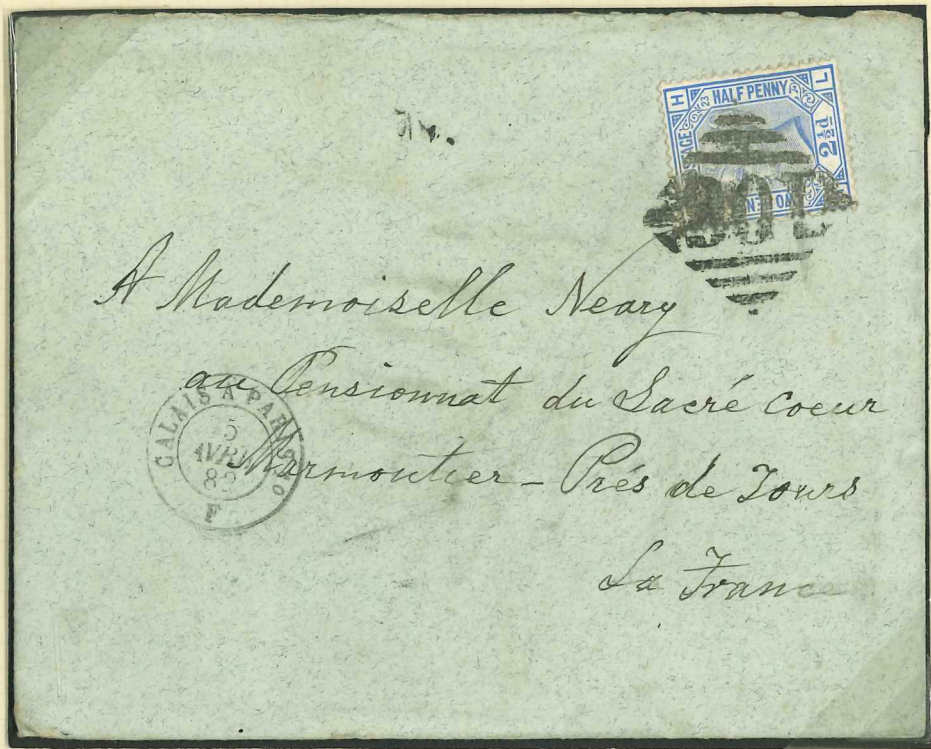 H HALF PENNY L
23
2½d
A Mademoiselle Neary
au Pensionnat du Sacré coeur
Marmoutier - Prés de Tours
La France
CALAIS A PARIS
5
AVRIL
F